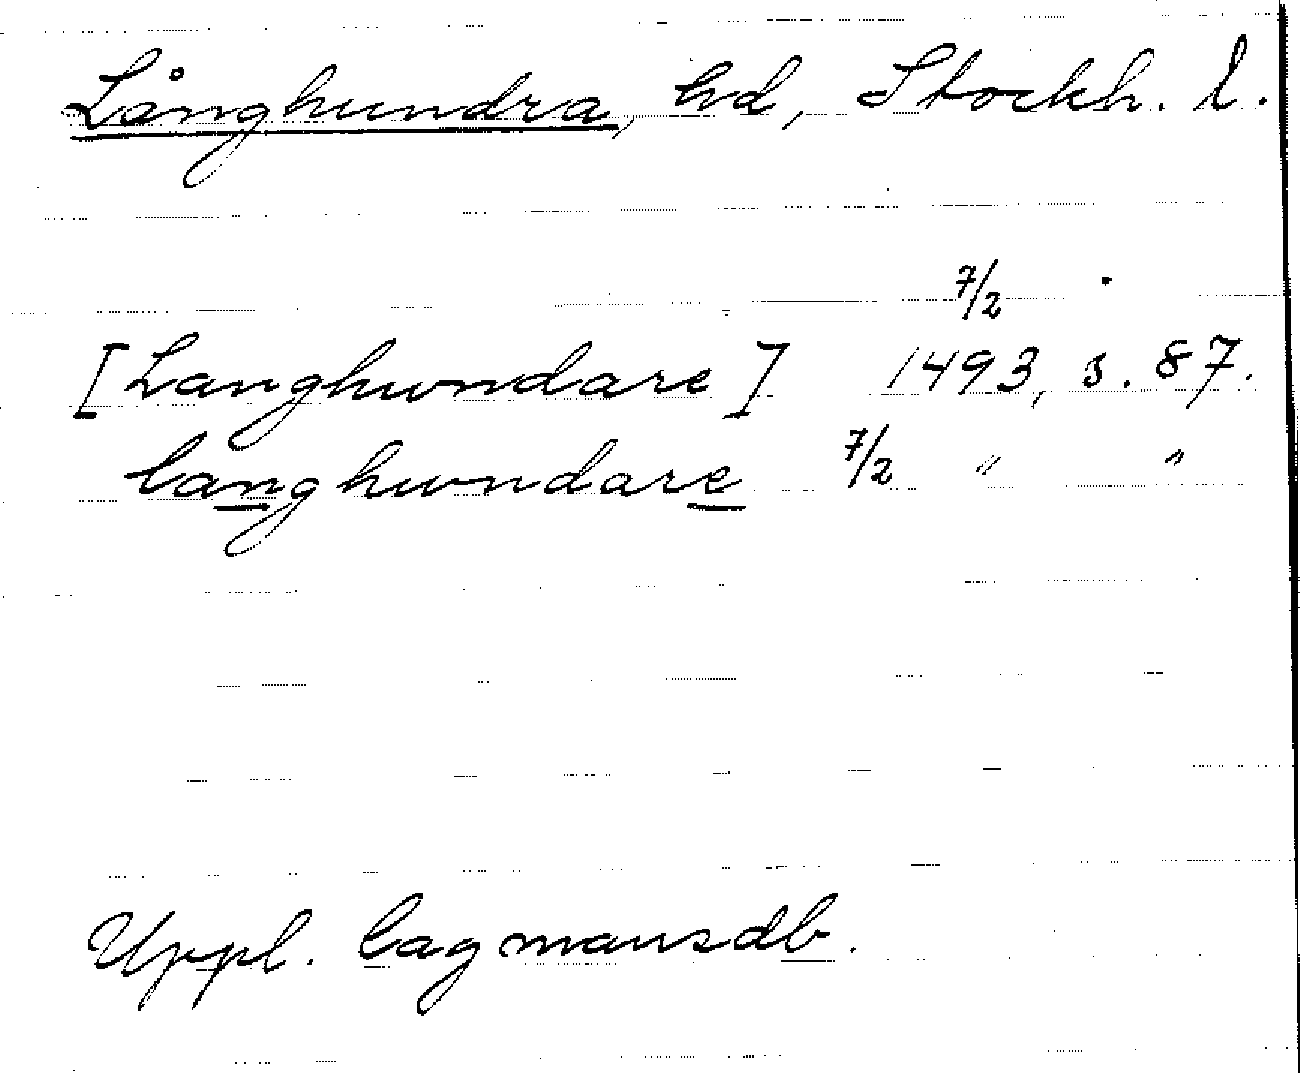 Långhundra, hd, Stockh. l.
7/2
[Langhundare] 1493, s. 87.
langhundare 7/2 " "
Uppl. lagmansdb.